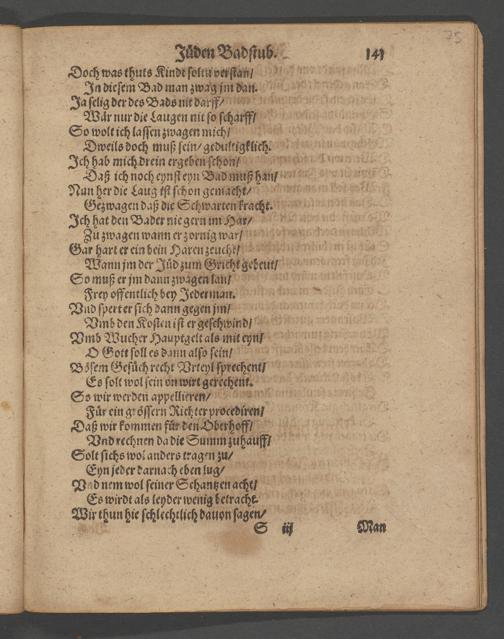 75
Jüden Badstub. 141
Doch was thuts Kindt soltu verstan/
In diesem Bad man zwag jm dan.
Ja selig der des Bads nit darff/
Wär nur die Laugen nit so scharff/
So wolt ich lassen zwagen mich/
Dweils doch muß sein/ gedultigklich.
Ich hab mich drein ergeben schon/
Daß ich noch eynst eyn Bad muß han/
Nun her die Laug ist schon gemacht/
Gezwagen daß die Schwarten kracht.
Ich hat den Bader nie gern im Har/
Zü zwagen wann er zornig war/
Gar hart er ein bein Haren zeucht/
Wann jm der Jüd zum Gricht gebeut/
So muß er jm dann zwagen lan/
Frey offentlich bey Jederman.
Vnd sperter sich dann gegen jm/
Vmb den Kosten ist er geschwind/
Vmb Wucher Hauptgelt als mit eyn/
O Gott soll es dann also sein/
Bösem Gesüch recht Vrteyl sprechent/
Es solt wol sein on wirt gerechent.
So wir werden appellieren/
Für ein grössern Richter procedieren/
Daß wir kommen für den Oberhoff/
Vnd rechnen da die Summ zuhauff/
Solt sichs wol anders tragen zu/
Eyn jeder darnach eben lug/
Vnd nem wol seiner Schantzen acht/
Es wirdt als leyder wenig betracht.
Wir thun hie schlechtlich dauon sagen/
S iij Man